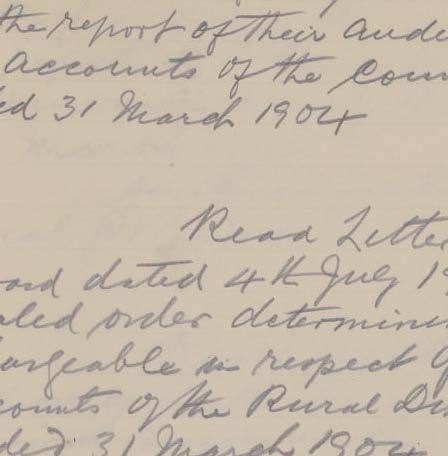 the report of their Audi
accounts of the Coun
ed 31 March 1904
Read Lette
oard dated 4th July 19
aled order determinin
argeable in respect of
counts of the Rural Dis
ded 31 March 1904